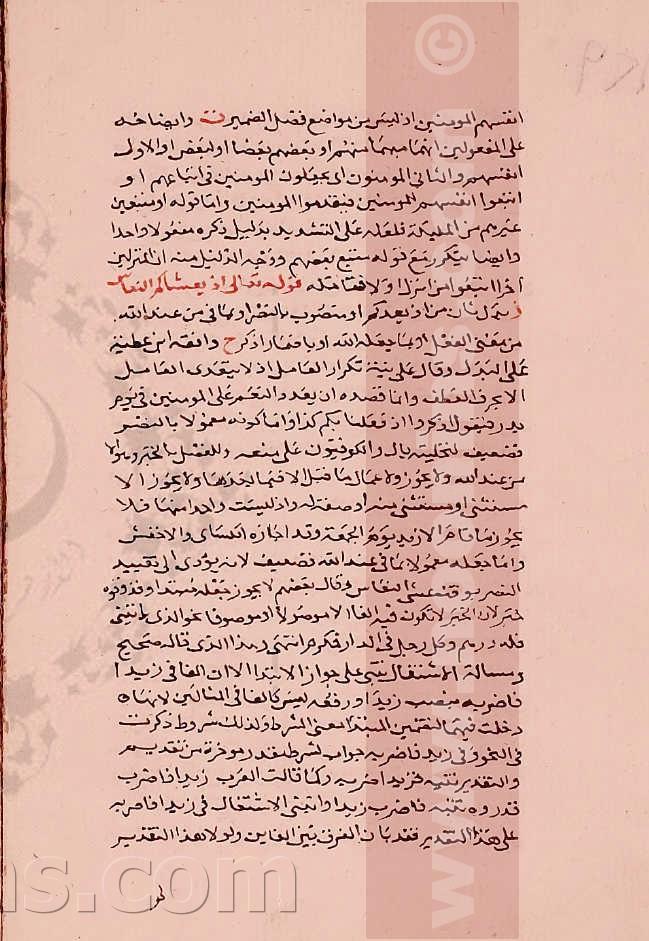 انفسهم المومنين اذ ليس من مواضع فصل الضميرين وايضا
على المفعولين انهما منهم او بعضهم بعضا او لبعض او الاول
انفسهم والثاني المومنون اي يجعلون المومنين في اتباعهم او
اتبعوا انفسهم المومنين فيتقدموا المومنين واما قوله او متبعين
غيرهم من المليكة فلعله على التشديد بدليل ذكره مفعولا واحدا
وايضا يتكرر مع قوله متبع بعضهم ووجه الدليل منه ان المنزلين
آخرا اتبعوا من انزل اولا قوله تعالى اذ يغشاكم النعاس
بدل ثان من اذ يعدكم او منصوب بالنصر او بما في من عند الله
من معنى الفعل او بما جعله الله او باضمار اذكر ح وافقه ابن عطية
على البدل وقال على نية تكرار العامل اذ لا يتعدى العامل
الا بحرف العطف وانما قصده ان يعدد النعم على المومنين في يوم
بدر فيقول اذكروا اذ فعلنا بكم كذا واما كونه معمولا بالنصر
فضعيف لتحليته بال والكوفيون على منعه وللفصل بالخبر
من عند الله ولا يجوز ولا عمال ما قبل الا فيما بعدها ولا يجوز الا
مستثنى او مستثنى منه او صفة له واذ ليست واحدا منها فلا
يجوز ما قام الا زيد يوم الجمعة وقد اجازه الكسائي والاخفش
واما جعله معمولا بما في عند الله فضعيف لانه يؤدي الى تقييد
النصر بوقت غشي النعاس وقال بعضهم لا يجوز جعله مبتدا
خبر لان الخبر لا تكون فيه الفا الا موصولا او موصوفا نحو الذي ياتيني
فله درهم وكل رجل في الدار فكرم انتهى وهذا الذي قاله صحيح
ومسالة الاشتغال تبنى على جواز الابتدا الا ان الفا في زيدا
فاضربه بنصب زيدا ورفعه ليس كالفا في المثالين لانها
دخلت فيهما لتضمين المبتدا معنى الشرط ولذلك شروط ذكرت
في النحو وفي زيد فاضربه جواب لشرط مقدر موخرة من تقديم
والتقدير تنبه فزيدا ضربه وكما قالت العرب زيدا فاضرب
قدروه تنبه فاضرب زيدا وابتنى الاشتغال في زيدا فاضربه
على هذا التقدير فقد بان الفرق بين الفاين ولولا هذا التقدير
لم